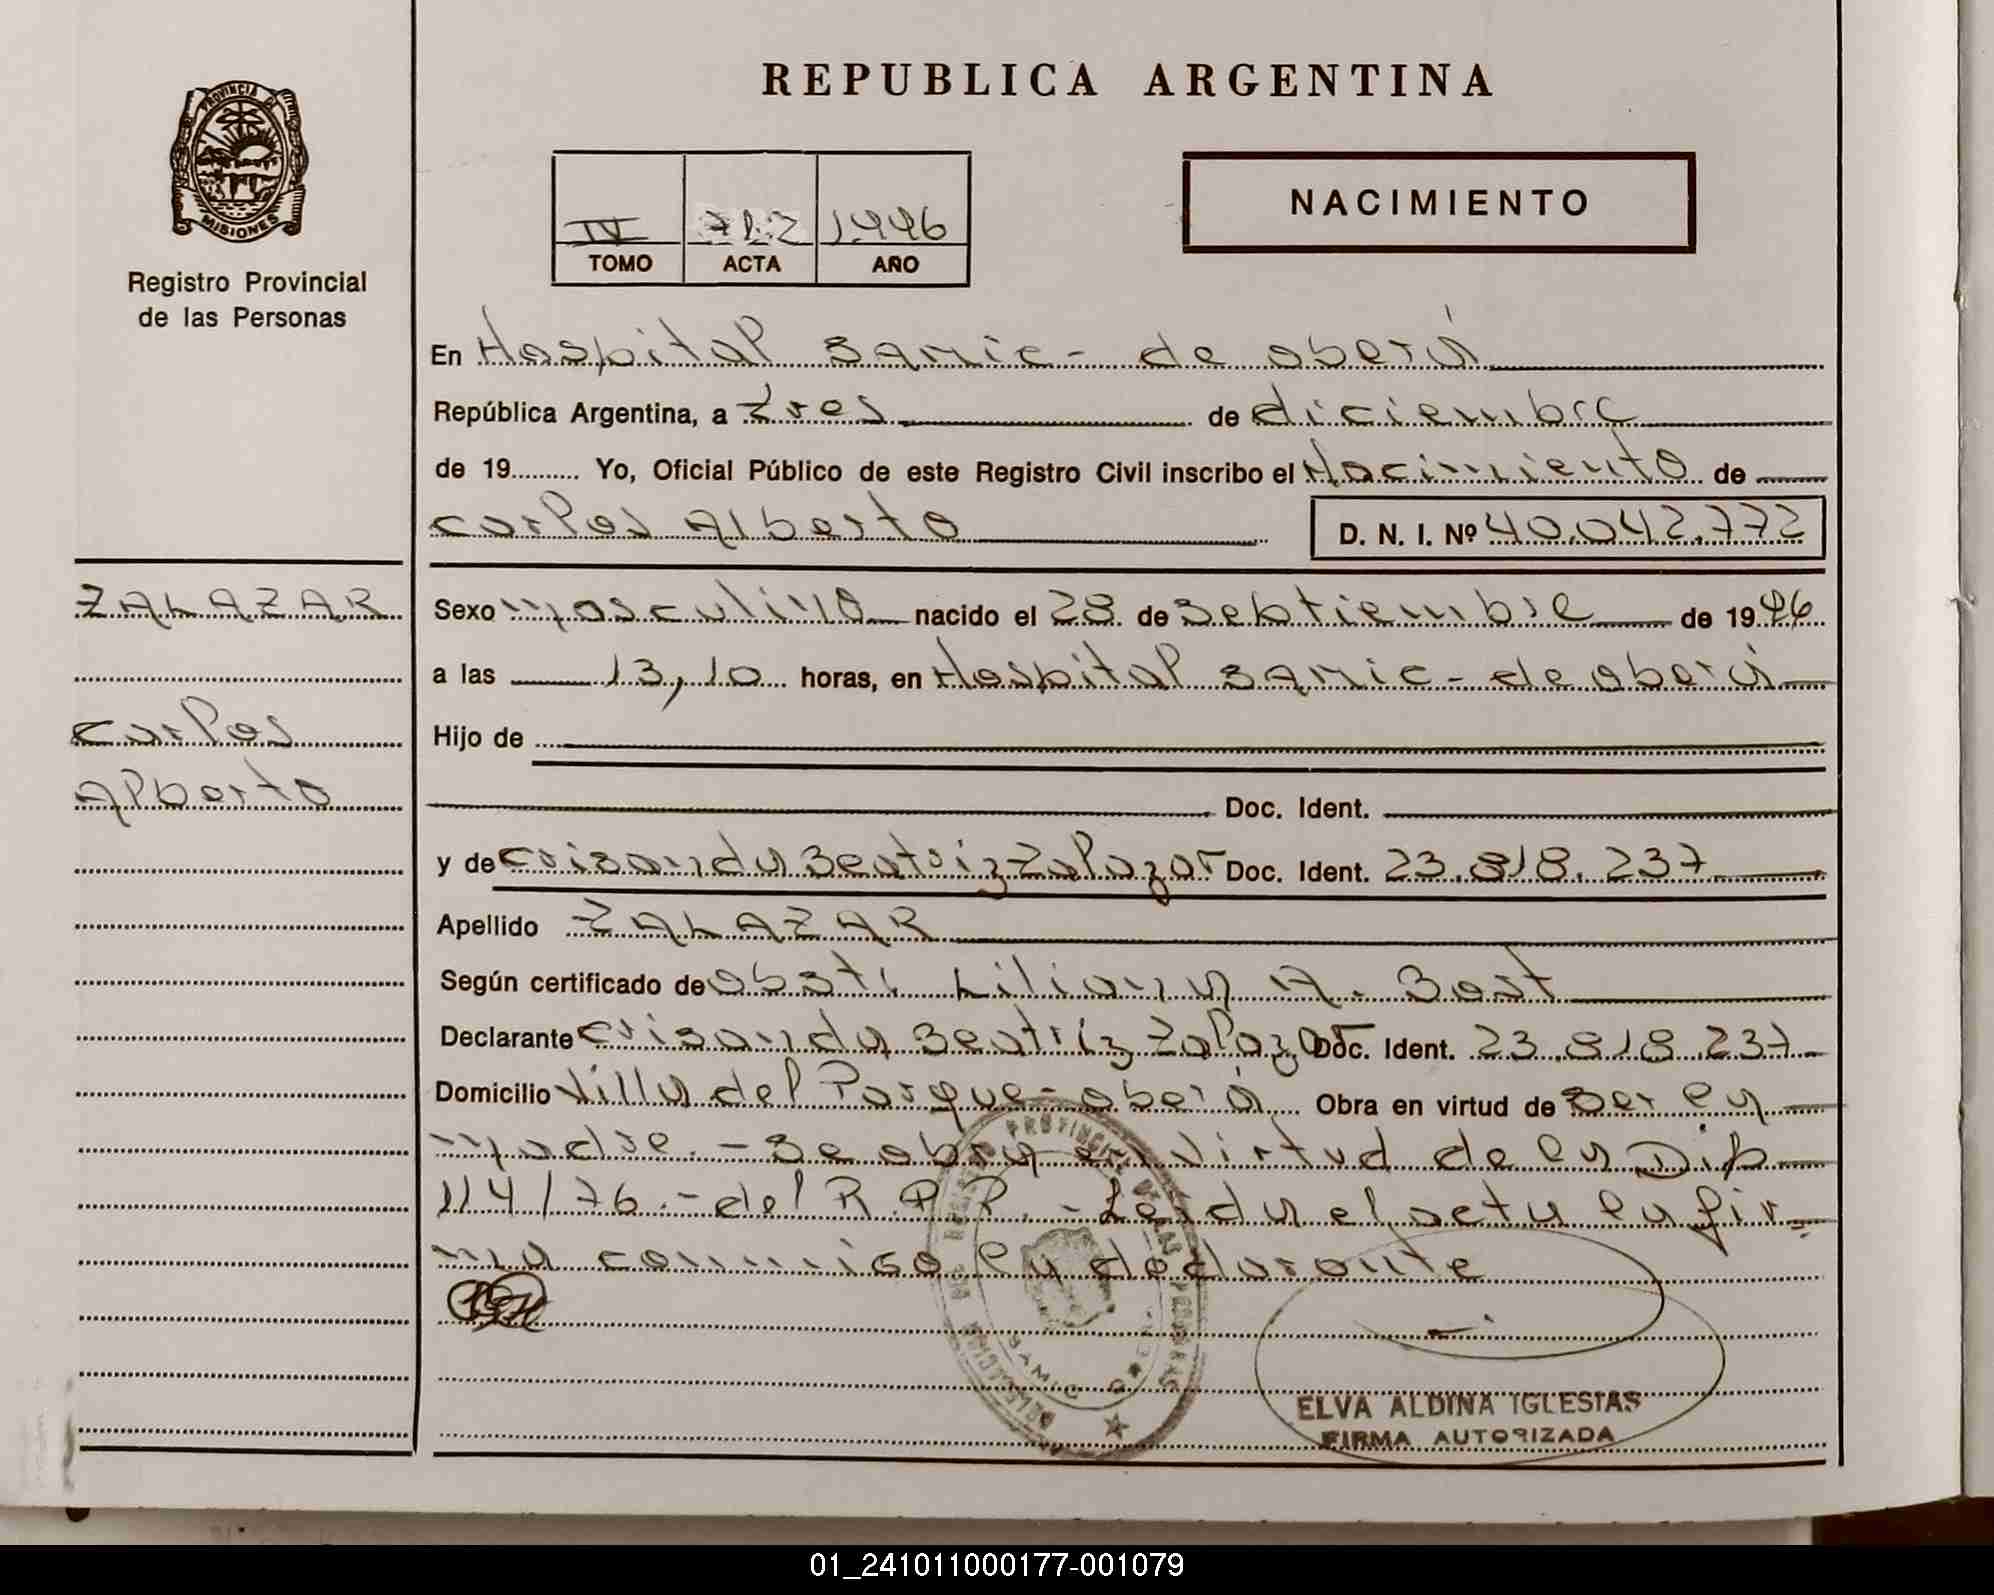 REPUBLICA ARGENTINA
PROVINCIA DE
MISIONES
Registro Provincial
de las Personas
NACIMIENTO
IV 712 1996
TOMO ACTA AÑO
En Hospital Samic - de oberá
República Argentina, a tres de diciembre
de 19 Yo, Oficial Público de este Registro Civil inscribo el Nacimiento de
carlos Alberto D. N. I. Nº 40.042.772
ZALAZAR
carlos
alberto
Sexo masculino nacido el 28 de septiembre de 1996
a las 13,10 horas, en Hospital Samic - de oberá
Hijo de
Doc. Ident.
y de crisanda Beatriz Zalazar Doc. Ident. 23.818.237
Apellido ZALAZAR
Según certificado de obst. Liliana A. Bast
Declarante crisanda Beatriz Zalazar Doc. Ident. 23.818.237
Domicilio Villa del Parque - oberá Obra en virtud de ser la
madre. - se obra en virtud de la Dip
114/76. - del R.P.P. - Leída el acta la fir-
ma conmigo la declarante
DELEGACION DEL REGISTRO PROVINCIAL DE LAS PERSONAS
SAMIC OBERA
ELVA ALDINA IGLESIAS
FIRMA AUTORIZADA
01_241011000177-001079